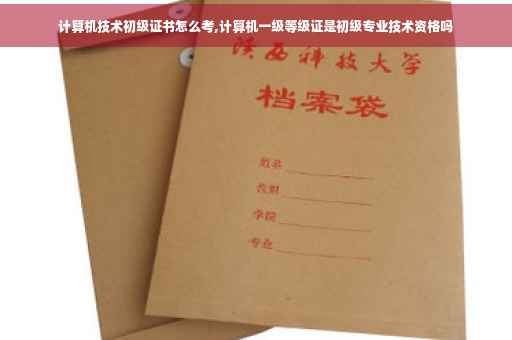 计算机技术初级证书怎么考,计算机一级等级证是初级专业技术资格吗
陕西科技大学
档案袋
姓名
学院
专业